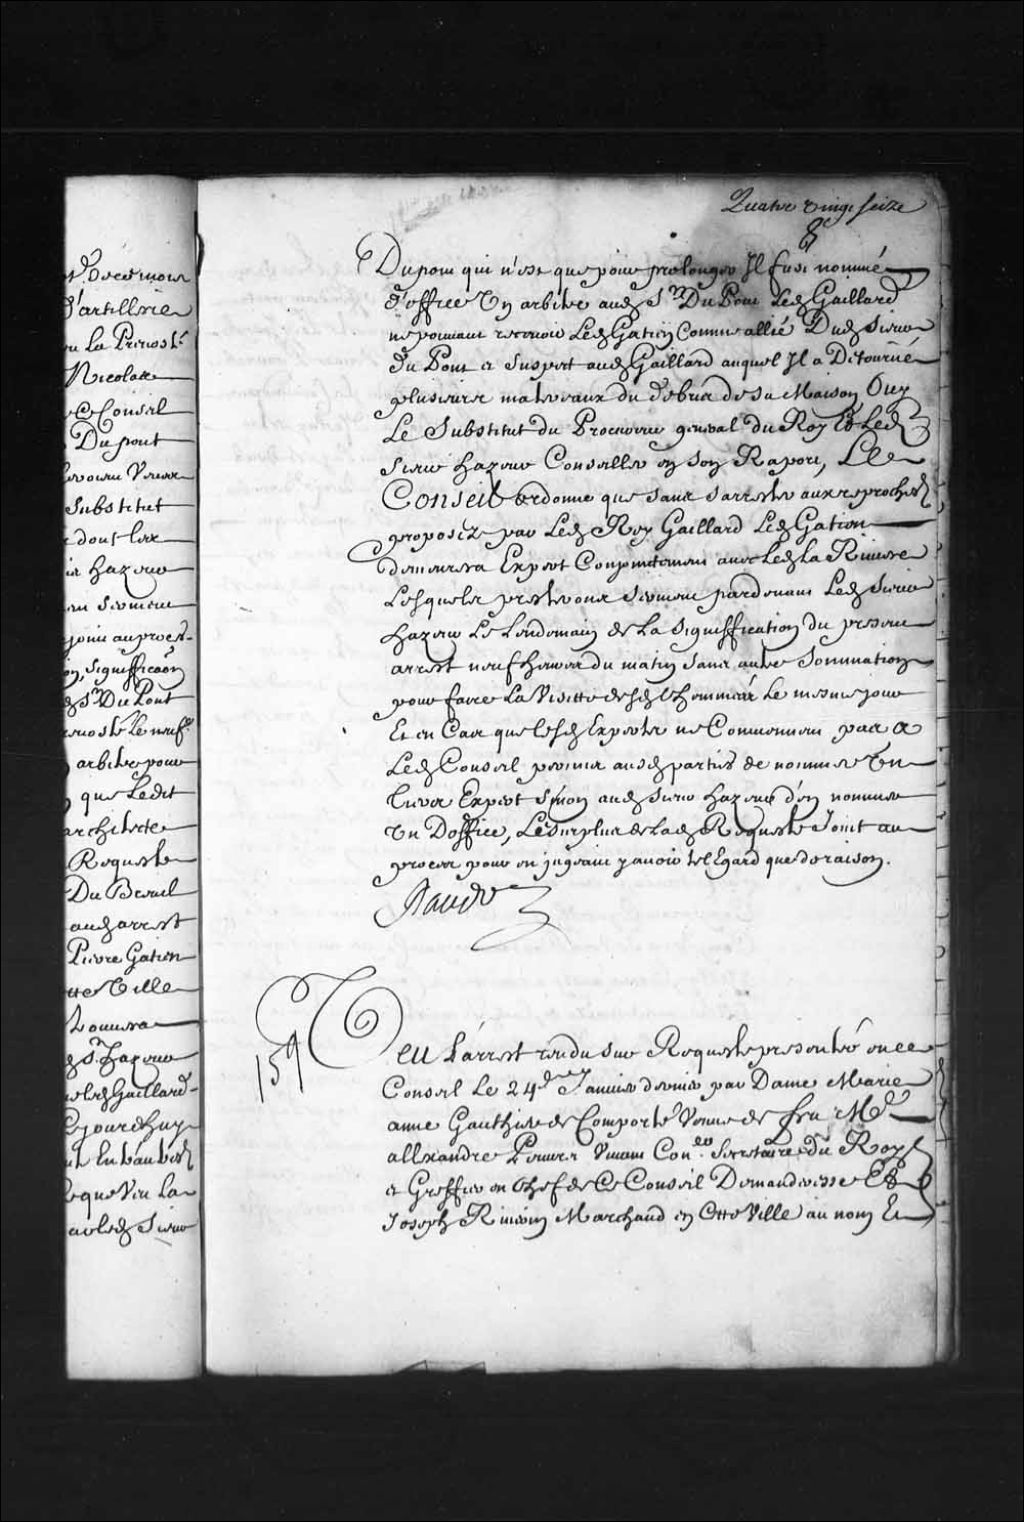 Quatre vingt seize
8
Dupont qui n'est que pour prolonger Il fust nommé
d'office Un arbitre aud. Sr. Du Pont Led. Gaillard
ne pouvant recevoir Led. Gation Comme allié Dud. Sieur
Du Pont et Suspect aud. Gaillard auquel Jl a Détourné
plusieurs materiaux du debris de sa Maison Ouy
Le Substitut du Procureur general du Roy Et Led.
Sieur hazeur Conseiller en son Raport, Le
Conseil ordonne que sans s'arrester aux reproches
proposéz par Led. Roy Gaillard Led. Gation
demeurera Expert Conjointement avec Led. La Riviere
Lesquels presteront Serment pardevant Led. Sieur
hazeur Le Lendemain de La Signiffication du present
arrest neuf heures du matin sans autre Sommation
pour faire La Visitte desd. Cheminées Le mesme jour
Et en Cas que lesd. Experts ne Conviennent pas a
Led. Conseil permis ausd. parties de nommer Un
tiers Expert Sinon aud. Sieur hazeur d'en nommer
Un Doffice, Le surplus de Lad. Requeste Joint au
procez pour en jugeant y avoir tel Egard que de raison.
Raudot
159
Veu L'arrest rendu sur Requeste presentée en ce
Conseil Le 24e Janvier dernier par Dame Marie
anne Gauthier de Comporté Veuve de feu Me.
allexandre Peuvret Vivant Coner. Secretaire du Roy
et Greffier en Chef de Ce Conseil Demanderesse Et
Joseph Riverin Marchand en Cette Ville au nom Et
d'artillerie
Nicolas
Ce Conseil
Dupont
Substitut
dont lux
hazeur
joint au procez
on, Signifficaon
Sr. Du Pont
arbitre pour
que Ledit
architecte
Requeste
Du Breuil
aud. arrest
Pierre Gation
tte Ville
Sr. hazeur
led. Gaillard
Ce jourd'huy
que Veu La
Sieur